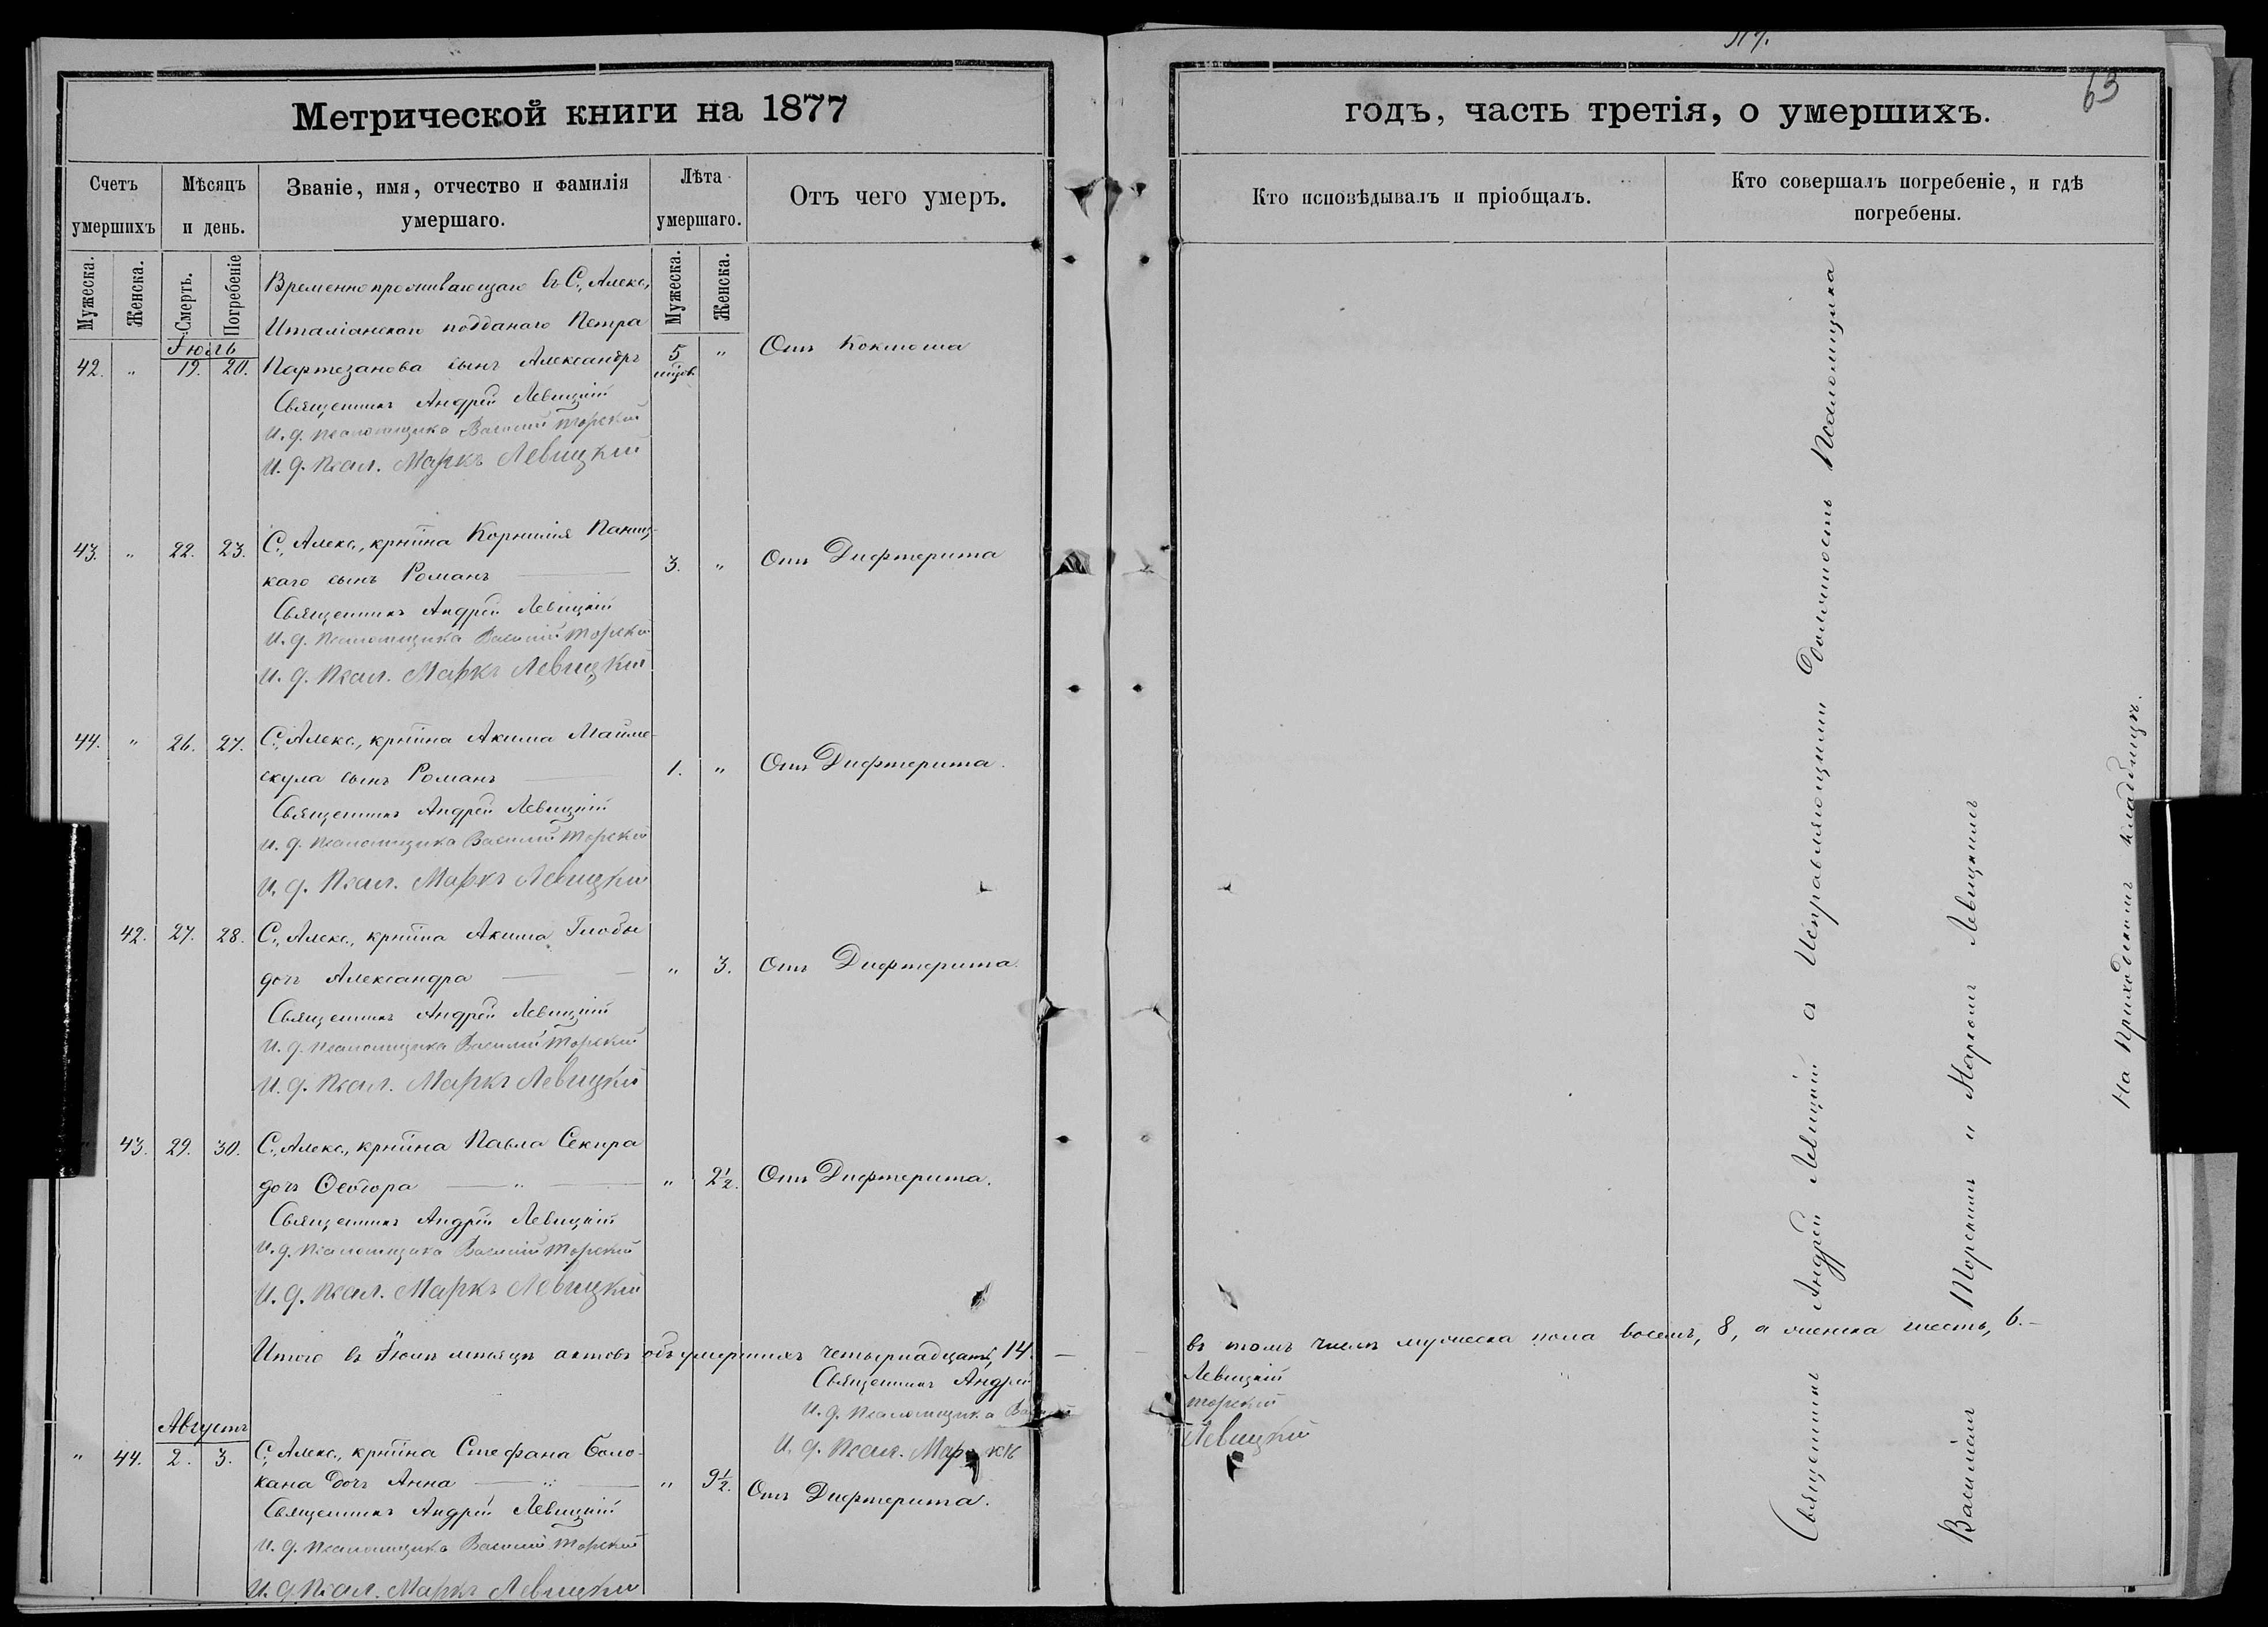 Метрической книги на 1877
Счетъ умершихъ
Мѣсяцъ и день.
Званіе, имя, отчество и фамилія умершаго.
Лѣта умершаго.
Отъ чего умеръ.
Мужеска.
Женска.
Смерть.
Погребеніе
Мужеска.
Женска.
Временно проживающаго въ С. Алекс.
Италіанскаго подданаго Петра
Іюль
42. " 19. 20. Партезанова сынъ Александръ 5 мѣсв. " Отъ Коклюша
Священникъ Андрей Левицкій
И. д. псаломщика Василій Торскій
И. д. Псал. Маркъ Левицкій
43. " 22. 23. С. Алекс., крнина Корнилія Паниц-
каго сынъ Романъ 3. " Отъ Дифтерита
Священникъ Андрей Левицкій
И. д. псаломщика Василій Торскій
И. д. Псал. Маркъ Левицкій
44. " 26. 27. С. Алекс., крнина Акима Майме-
скула сынъ Романъ 1. " Отъ Дифтерита.
Священникъ Андрей Левицкій
И. д. псаломщика Василій Торскій
И. д. Псал. Маркъ Левицкій
42. 27. 28. С. Алекс., крнина Акима Глобы
дочь Александра " 3. Отъ Дифтерита.
Священникъ Андрей Левицкій
И. д. псаломщика Василій Торскій
И. д. Псал. Маркъ Левицкій
" 43. 29. 30. С. Алекс., крнина Павла Секира
дочь Ѳеодора " 2½. Отъ Дифтерита.
Священникъ Андрей Левицкій
И. д. псаломщика Василій Торскій
И. д. Псал. Маркъ Левицкій
Итого въ Іюлѣ мѣсяцѣ актовъ объ умершихъ четырнадцать, 14.
Священникъ Андрей
И. д. псаломщика Василій
И. д. Псал. Маркъ
Августъ
" 44. 2. 3. С. Алекс., крнина Стефана Боло-
кана дочь Анна " 9½. Отъ Дифтерита.
Священникъ Андрей Левицкій
И. д. псаломщика Василій Торскій
И. д. Псал. Маркъ Левицкій
63
годъ, часть третія, о умершихъ.
Кто исповѣдывалъ и пріобщалъ.
Кто совершалъ погребеніе, и гдѣ погребены.
въ томъ числѣ мужеска пола восемь, 8, а женска шесть, 6.
Левицкій
Торскій
Левицкій
Священникъ Андрей Левицкій съ Исправляющими Должность Псаломщика
Василіемъ Торскимъ и Маркомъ Левицкимъ
На приходскомъ кладбищѣ.